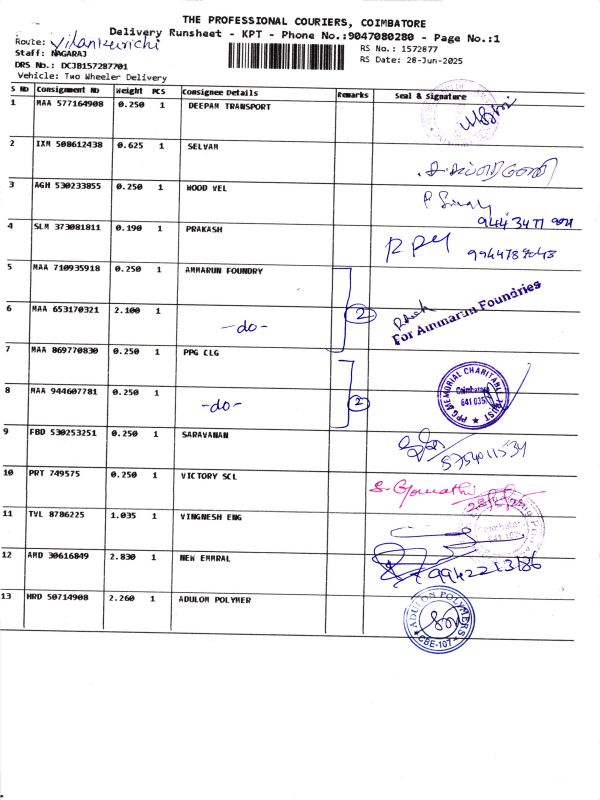 THE PROFESSIONAL COURIERS, COIMBATORE
Delivery Runsheet - KPT - Phone No.:9047080280 - Page No.:1
Route: Vilankurichi
RS No.: 1572877
Staff: NAGARAJ
RS Date: 28-Jun-2025
DRS No.: DCJB157287701
Vehicle: Two Wheeler Delivery
S No Consignment No Weight PCS Consignee Details Remarks Seal & Signature
1 MAA 577164908 0.250 1 DEEPAM TRANSPORT
2 IXM 508612438 0.625 1 SELVAM
3 AGH 530233855 0.250 1 WOOD VEL
4 SLM 373081811 0.190 1 PRAKASH
9944789043
5 MAA 710935918 0.250 1 AMMARUN FOUNDRY
6 MAA 653170321 2.100 1 -do- 2
For Ammarun Foundries
7 MAA 869770830 0.250 1 PPG CLG
8 MAA 944607781 0.250 1 -do- 2
PPG MEMORIAL CHARITABLE TRUST
Coimbatore
641 035
9 FBD 530253251 0.250 1 SARAVANAN
8754011534
10 PRT 749575 0.250 1 VICTORY SCL
S. Gomathi
11 TVL 8786225 1.035 1 VINGNESH ENG
12 AMD 30616849 2.830 1 NEW EMMRAL
9942213186
13 HRD 50714908 2.260 1 ADULOM POLYMER
ADULON POLYMERS
CBE-107